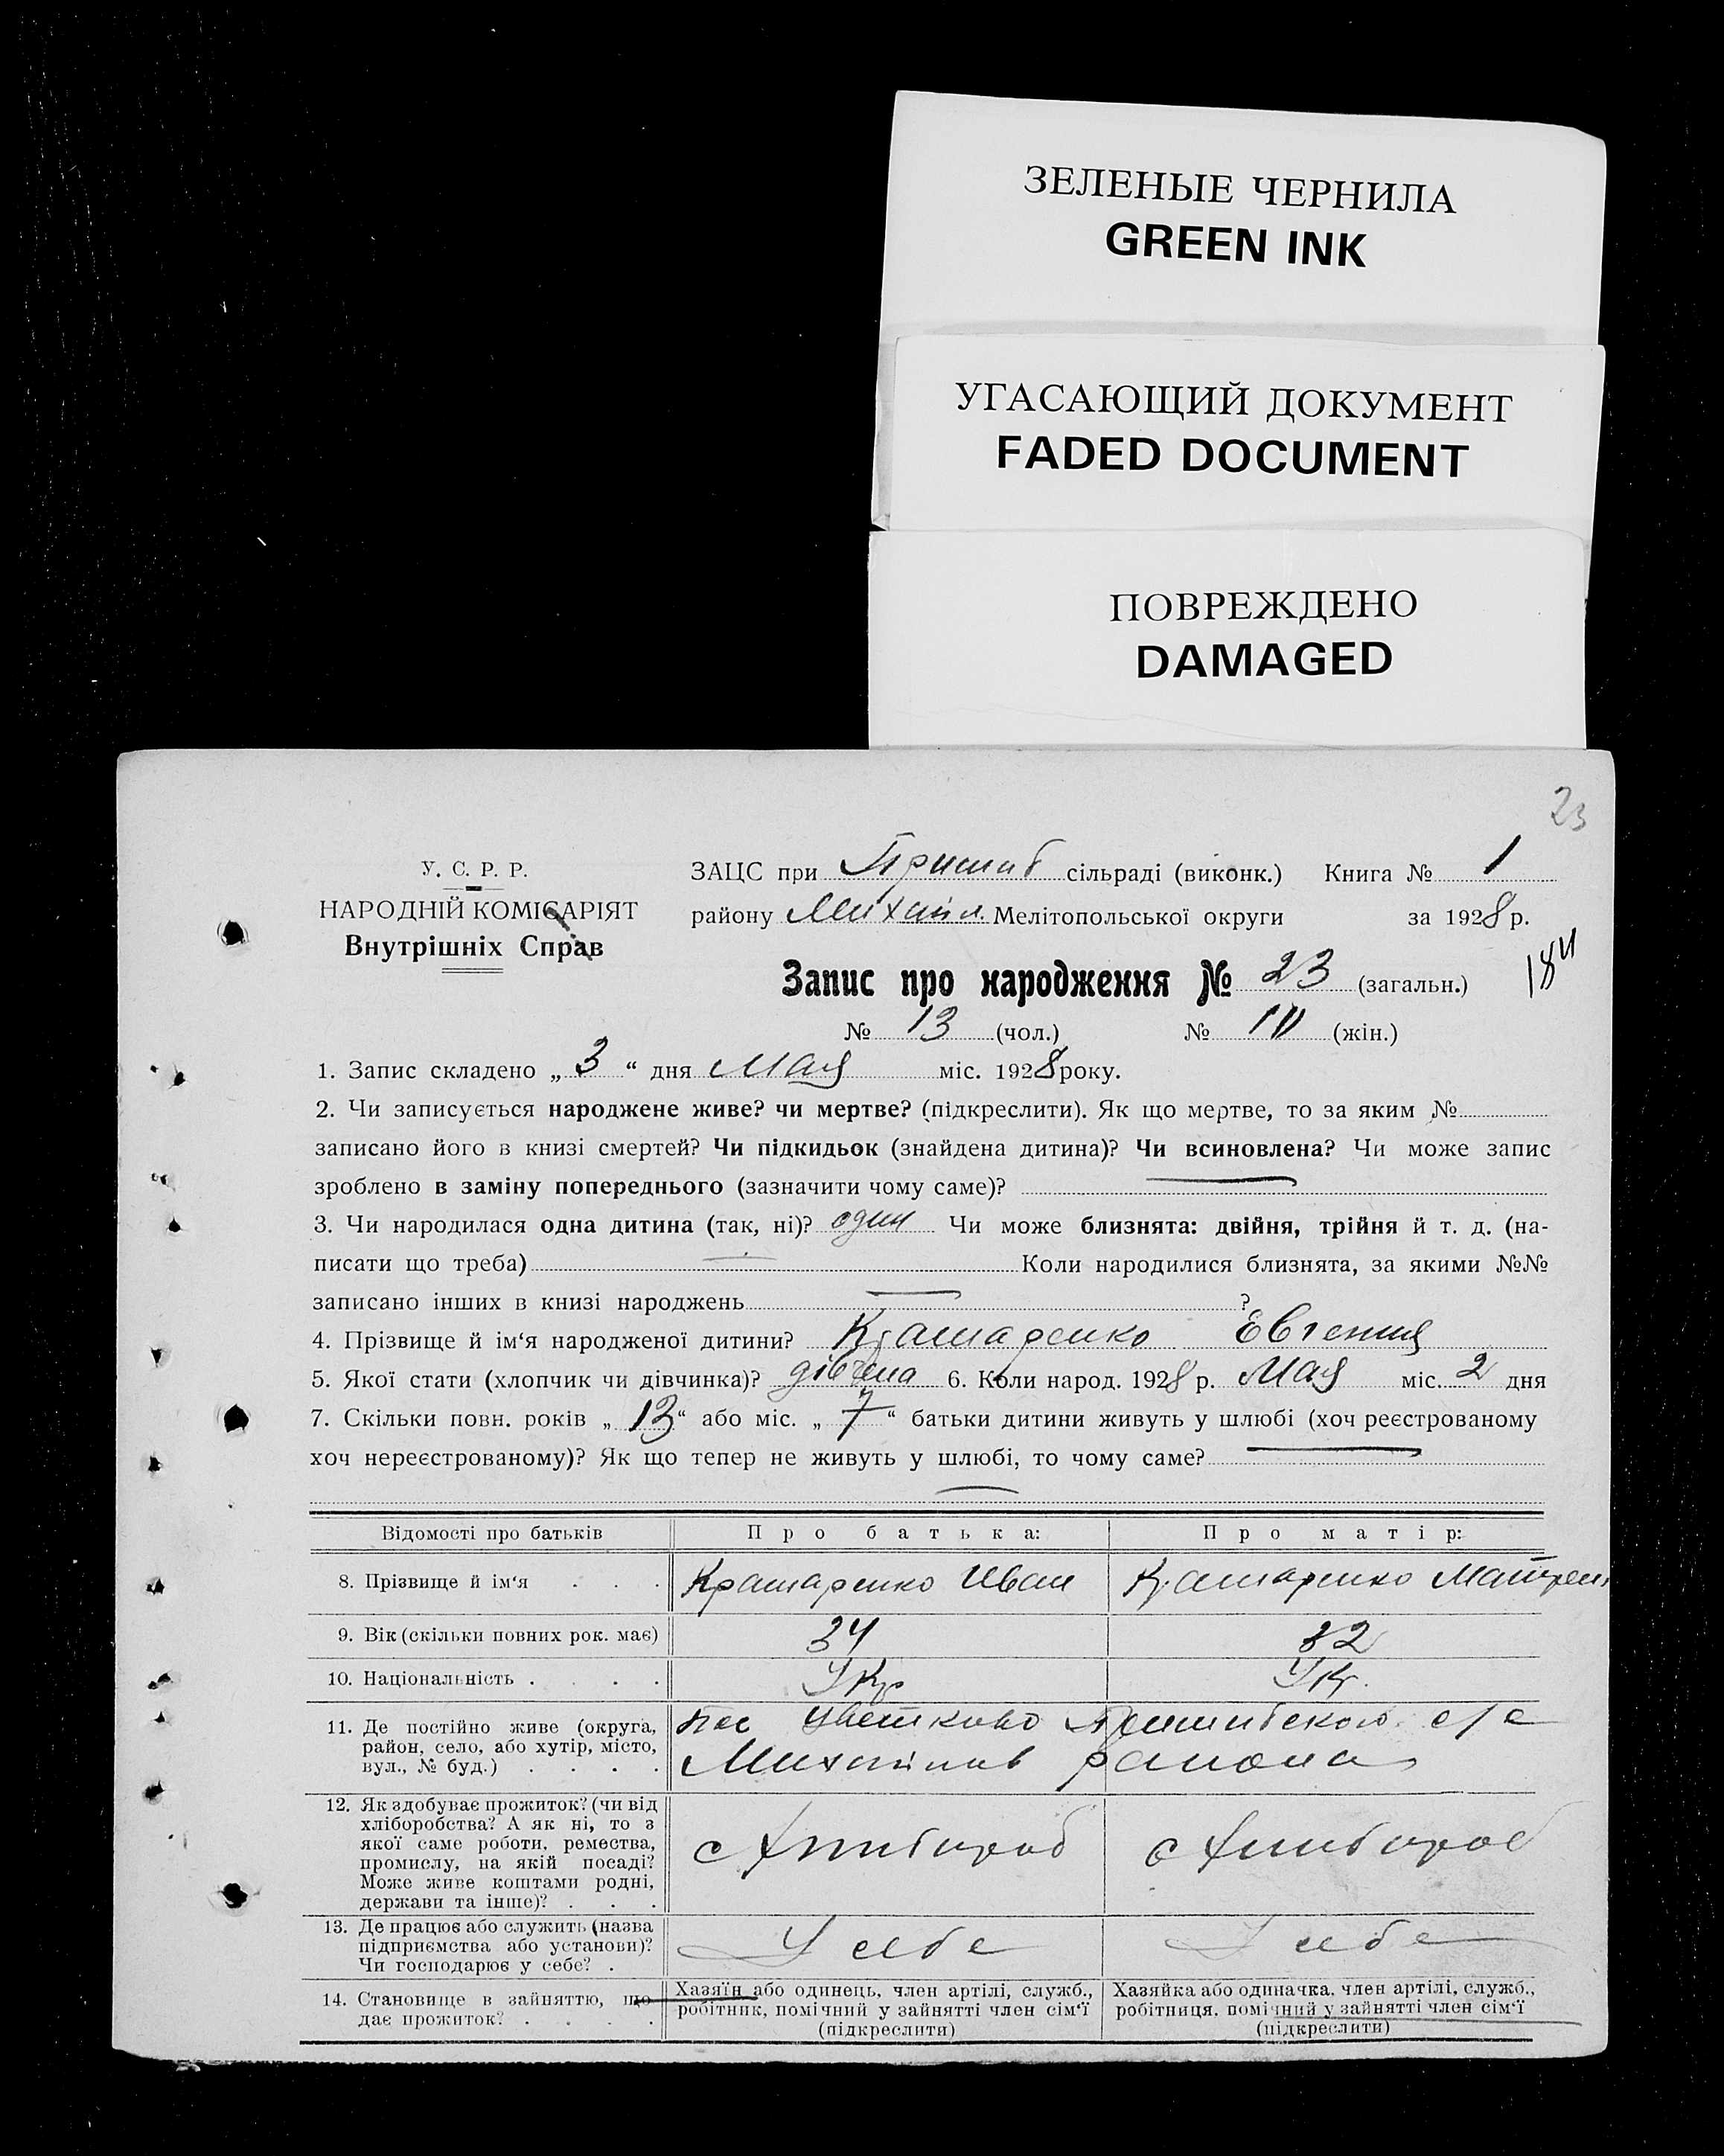 ЗЕЛЕНЫЕ ЧЕРНИЛА
GREEN INK
УГАСАЮЩИЙ ДОКУМЕНТ
FADED DOCUMENT
ПОВРЕЖДЕНО
DAMAGED
23
У. С. Р. Р.
НАРОДНІЙ КОМІСАРІЯТ
Внутрішніх Справ
ЗАЦС при Пришиб сільраді (виконк.) Книга № 1
району Михайл. Мелітопольської округи за 1928 р.
Запис про народження № 23 (загальн.)
№ 13 (чол.) № 10 (жін.)
1. Запис складено „ 3 “ дня Мая міс. 1928 року.
2. Чи записується народжене живе? чи мертве? (підкреслити). Як що мертве, то за яким №
записано його в книзі смертей? Чи підкидьок (знайдена дитина)? Чи всиновлена? Чи може запис
зроблено в заміну попереднього (зазначити чому саме)?
3. Чи народилася одна дитина (так, ні)? один Чи може близнята: двійня, трійня й т. д. (на-
писати що треба) Коли народилися близнята, за якими №№
записано інших в книзі народжень ?
4. Прізвище й ім‘я народженої дитини? Крамаренко Евгения
5. Якої стати (хлопчик чи дівчинка)? дівчена 6. Коли народ. 1928 р. Мая міс. 2 дня
7. Скільки повн. років „ 13 “ або міс. „ 7 “ батьки дитини живуть у шлюбі (хоч реєстрованому
хоч нереєстрованому)? Як що тепер не живуть у шлюбі, то чому саме?
Відомості про батьків Про батька: Про матір:
8. Прізвище й ім‘я . . . Крамаренко Иван Крамаренко Матрен
9. Вік (скільки повних рок. має) 34 32
10. Національність . . . . Укр Укр.
11. Де постійно живе (округа,
район, село, або хутір, місто,
вул., № буд.) . . . .
Пос Цветково Пришибского с/с
Михайлив района
12. Як здобуває прожиток? (чи від
хліборобства? А як ні, то з
якої саме роботи, ремества,
промислу, на якій посаді?
Може живе коштами родні,
держави та інше)? . . .
с хлибороб с хлибороб
13. Де працює або служить (назва
підприємства або установи)?
Чи господарює у себе? .
У себе У себе
14. Становище в зайняттю, що
дає прожиток? . . . .
Хазяїн або одинець, член артілі, служб.,
робітник, помічний у зайнятті член сім‘ї
(підкреслити)
Хазяйка або одиначка, член артілі, служб.,
робітниця, помічний у зайнятті член сім‘ї
(підкреслити)